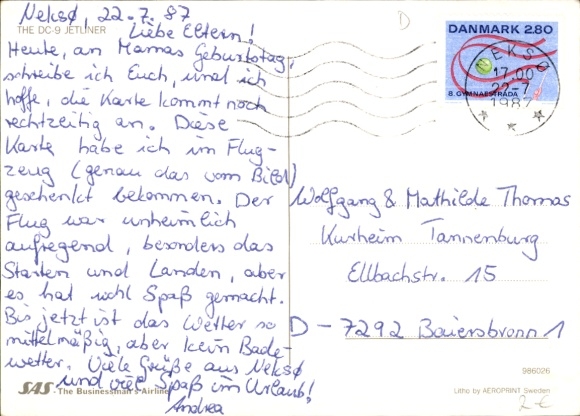 Neksø, 22.7.87
THE DC-9 JETLINER
Liebe Eltern!
Heute, an Mamas Geburtstag,
schreibe ich Euch, und ich
hoffe, die Karte kommt noch
rechtzeitig an. Diese
Karte habe ich im Flug-
zeug (genau das vom Bild)
geschenkt bekommen. Der
Flug war unheimlich
aufregend, besonders das
Starten und Landen, aber
es hat wohl Spaß gemacht.
Bis jetzt ist das Wetter so
mittelmäßig, aber kein Bade-
wetter. Viele Grüße aus Neksø
und viel Spaß im Urlaub!
Andrea
SAS - The Businessman's Airline
D
DANMARK 2.80
8. GYMNAESTRADA
NEKSØ
17.00
22-7
1987
Wolfgang & Mathilde Thomas
Kurheim Tannenburg
Ellbachstr. 15
D - 7292 Baiersbronn 1
986026
Litho by AEROPRINT Sweden
2€